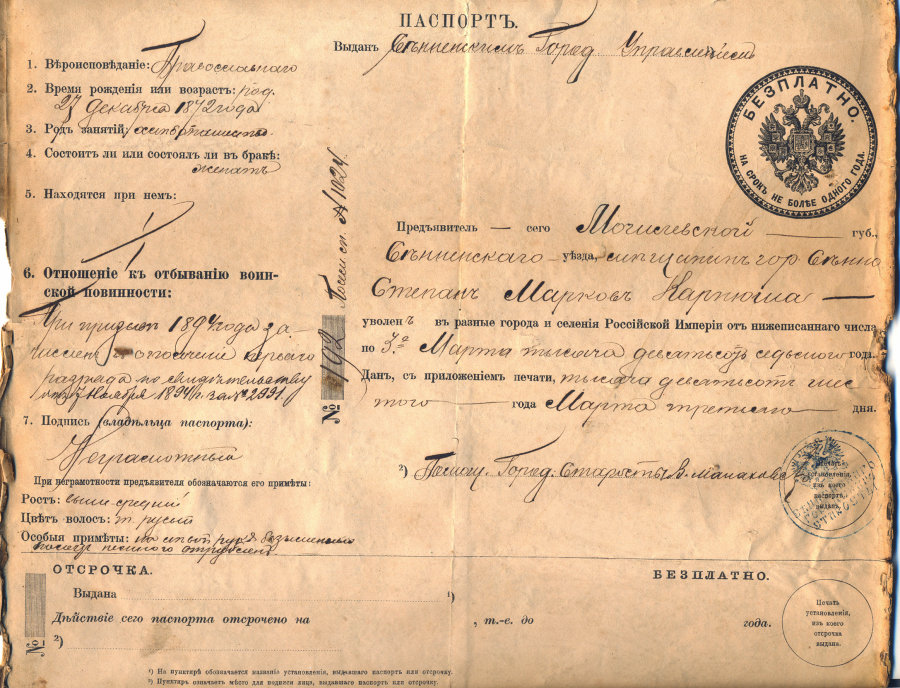 ПАСПОРТЪ.
Выданъ Сѣнненскимъ Город Управленіем
1. Вѣроисповѣданіе: Православнаго
2. Время рожденія или возрастъ: род.
27 декабря 1872 года
3. Родъ занятій:
4. Состоитъ ли или состоялъ ли въ бракѣ:
женатъ
5. Находятся при немъ:
6. Отношеніе къ отбыванію воин-
ской повинности:
При призывѣ 1894 года за-
численъ въ ополченіе перваго
разряда по свидѣтельству
1894 г. за № 2991.
7. Подпись (владѣльца паспорта):
Неграмотный
При неграмотности предъявителя обозначаются его примѣты:
Ростъ: выше средній
Цвѣтъ волосъ: т. русый
Особыя примѣты: на рукѣ
№ 102 сп. № 1024
БЕЗПЛАТНО.
НА СРОКЪ НЕ БОЛѢЕ ОДНОГО ГОДА.
Предъявитель — сего Могилевской губ.,
Сѣнненскаго уѣзда, мѣщанинъ гор Сѣнно
Степанъ Марковъ Карпюша
уволенъ въ разные города и селенія Россійской Имперіи отъ нижеписаннаго числа
по 3е Марта тысяча девятьсотъ седьмого года.
Данъ, съ приложеніемъ печати, тысяча девятьсотъ шес-
того года Марта третьяго дня.
²) Город. Старосты В.
Печать
установленія,
изъ коего
паспортъ
выданъ.
ОТСРОЧКА.
БЕЗПЛАТНО.
Выдана ¹)
Дѣйствіе сего паспорта отсрочено на , т.-е. до года.
№ ²)
Печать
установленія,
изъ коего
отсрочка
выдана.
¹) На пунктирѣ обозначается названіе установленія, выдавшаго паспортъ или отсрочку.
²) Пунктиръ означаетъ мѣсто для подписи лица, выдавшаго паспортъ или отсрочку.